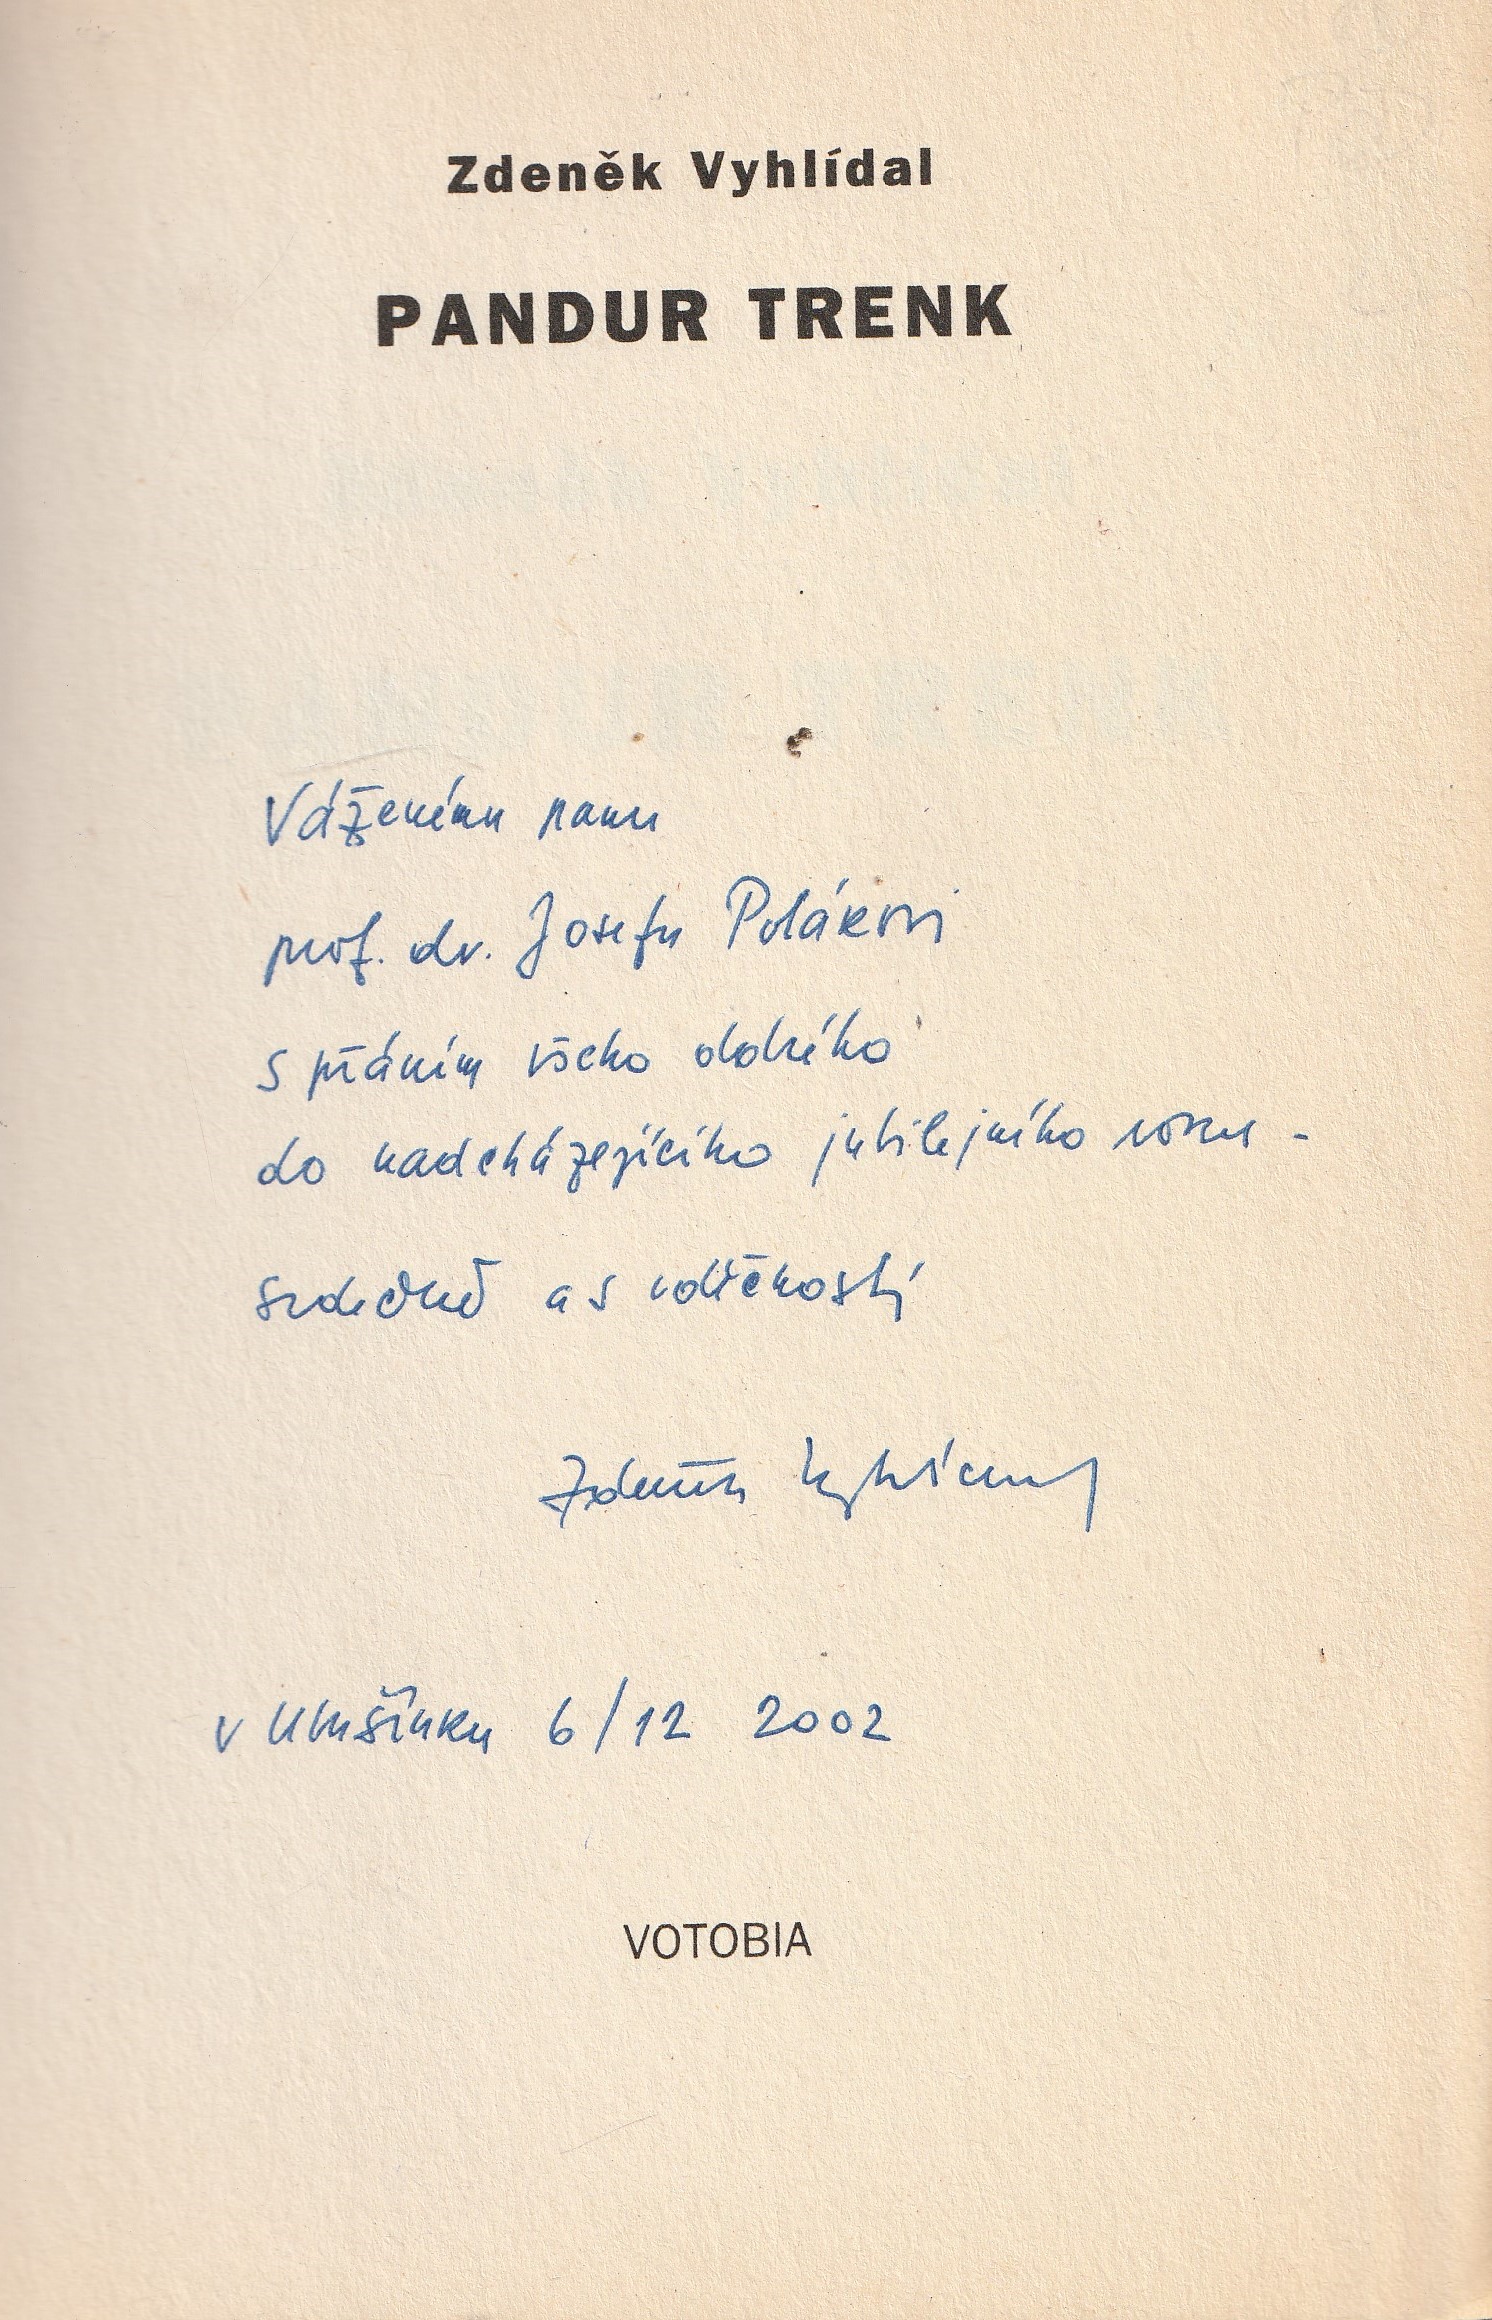 Zdeněk Vyhlídal
PANDUR TRENK
Váženému panu
prof. dr. Josefu Polákovi
s přáním všeho dobrého
do nadcházejícího jubilejního roku -
srdečně a s vděčností
Zdeněk Vyhlídal
v Uhušínku 6/12 2002
VOTOBIA